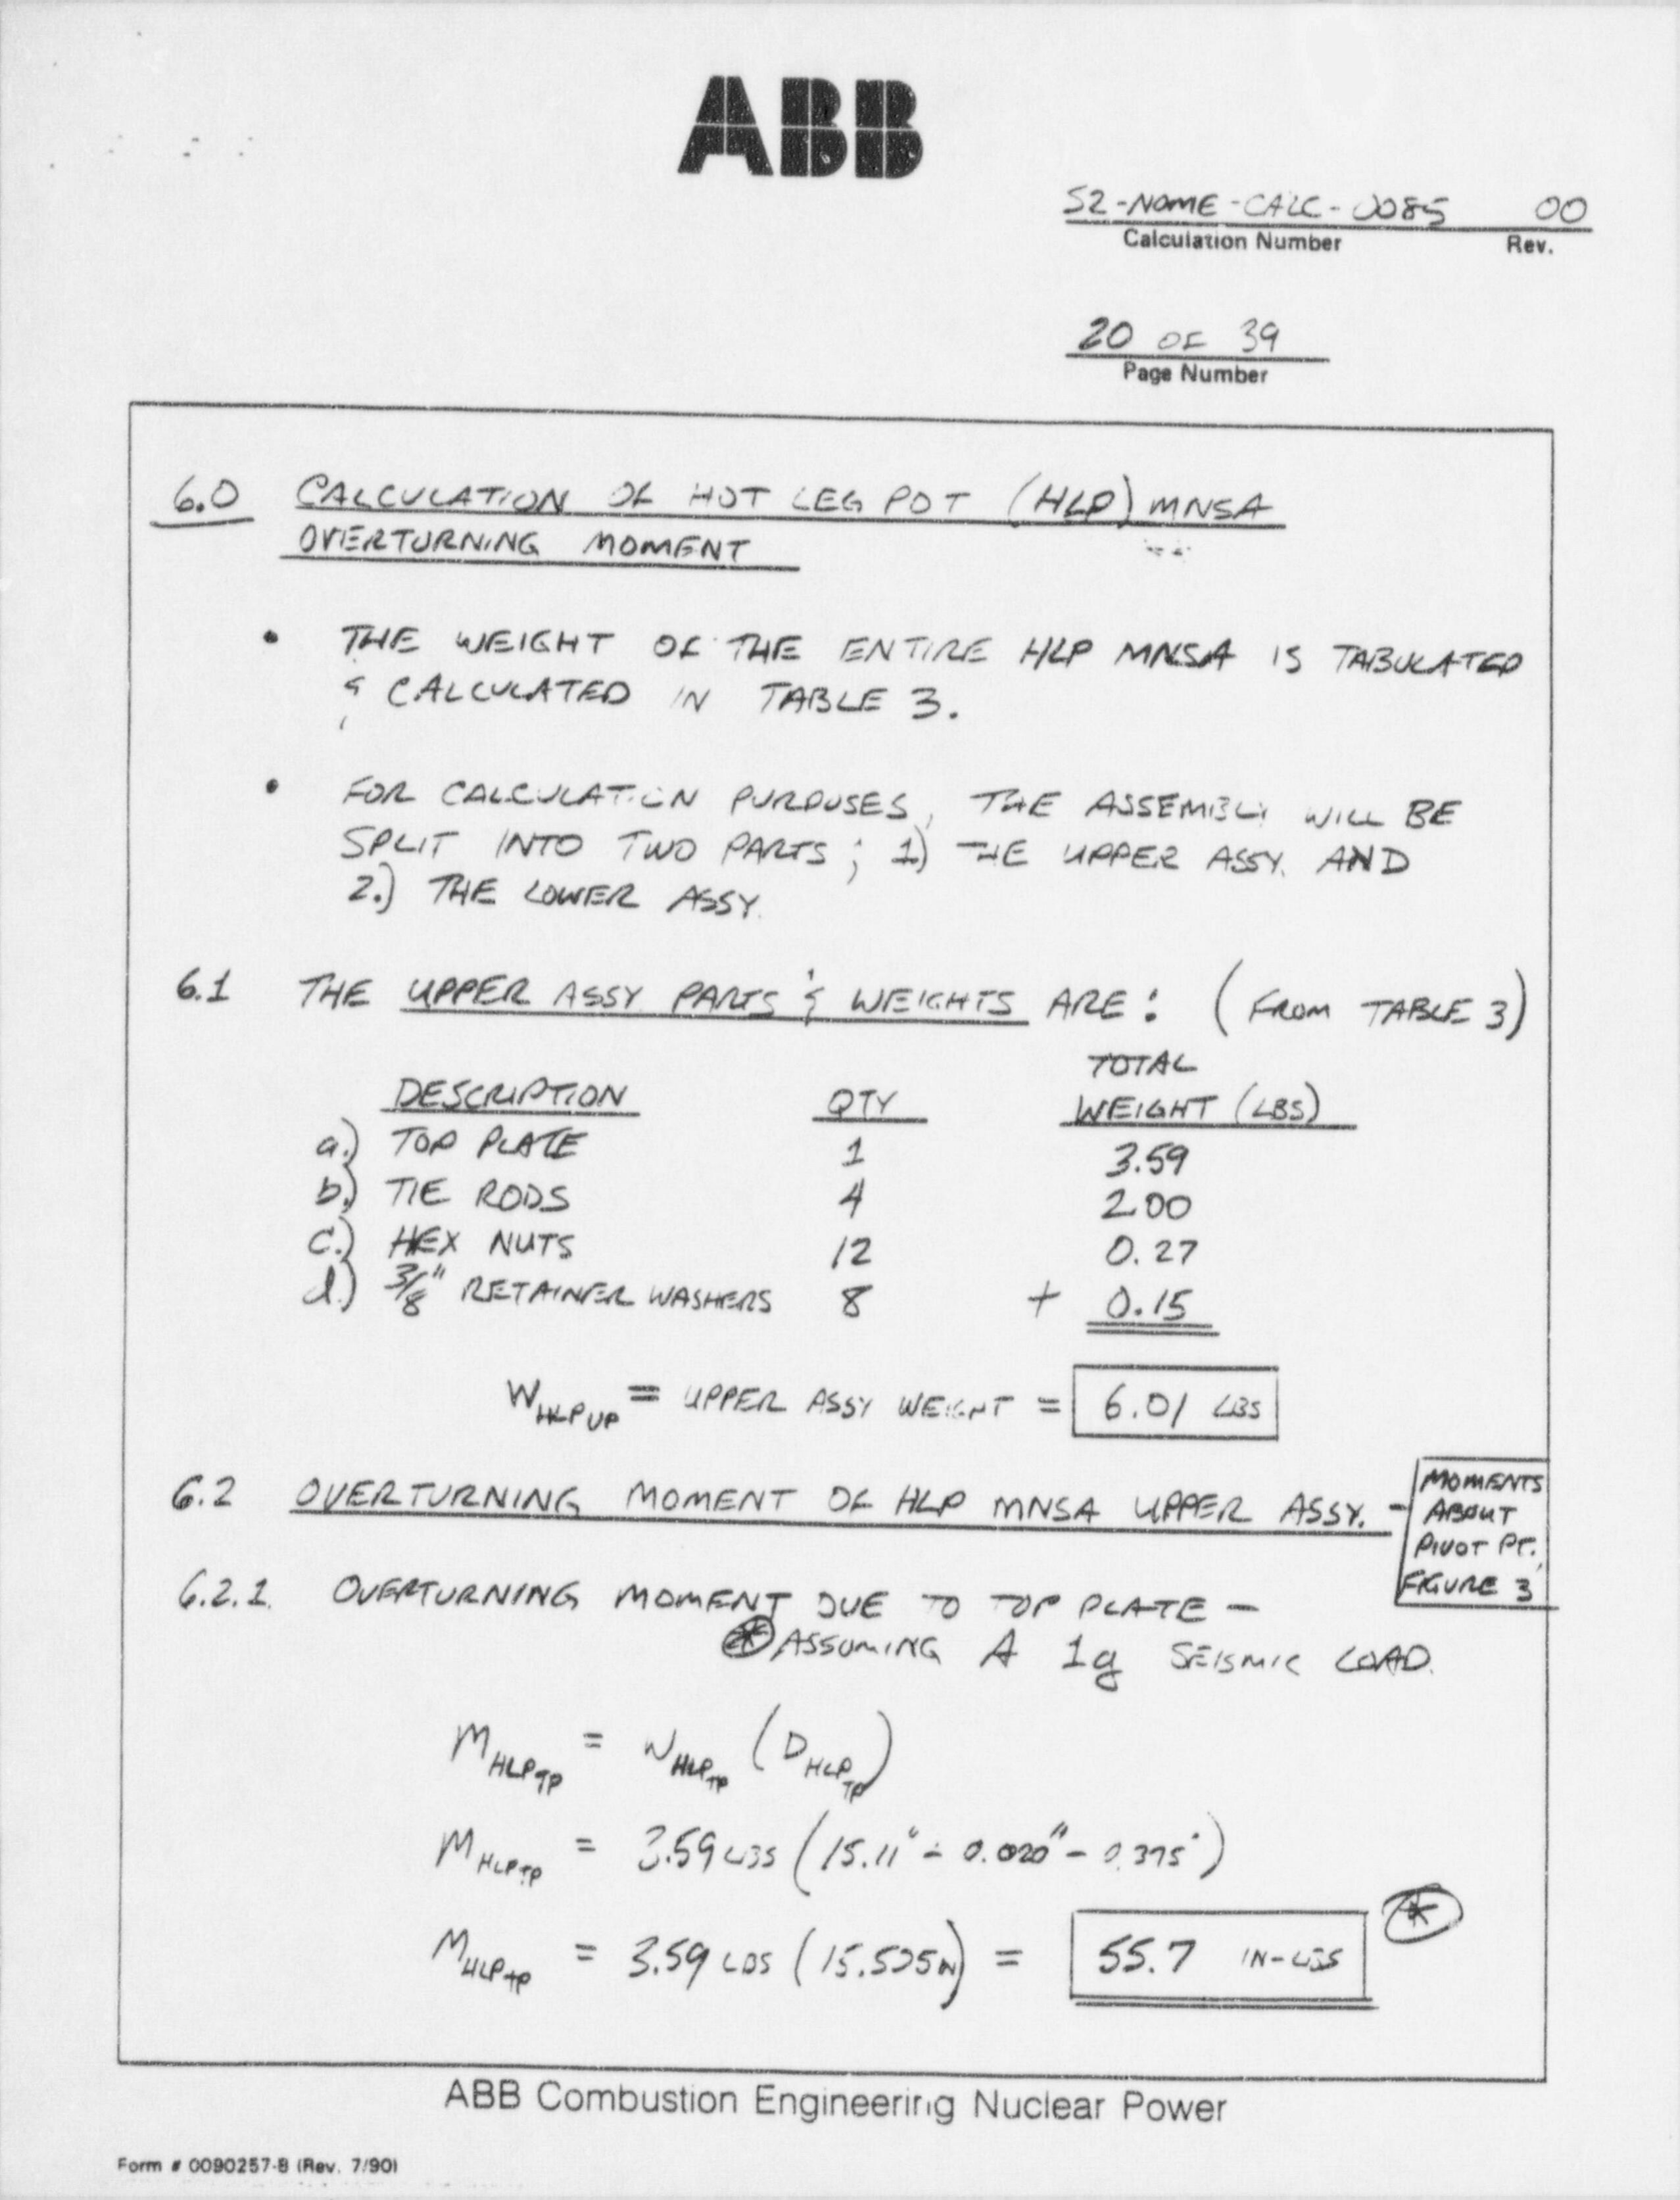 ABB
S2-NOME-CALC-0085 00
Calculation Number Rev.
20 OF 39
Page Number
6.0 CALCULATION OF HOT LEG POT (HLP) MNSA
OVERTURNING MOMENT
• THE WEIGHT OF THE ENTIRE HLP MNSA IS TABULATED
& CALCULATED IN TABLE 3.
• FOR CALCULATION PURPOSES, THE ASSEMBLY WILL BE
SPLIT INTO TWO PARTS; 1) THE UPPER ASSY. AND
2.) THE LOWER ASSY.
6.1 THE UPPER ASSY PARTS & WEIGHTS ARE: (FROM TABLE 3)
TOTAL
DESCRIPTION QTY WEIGHT (LBS)
a.) TOP PLATE 1 3.59
b.) TIE RODS 4 2.00
c.) HEX NUTS 12 0.27
d.) 3/8" RETAINER WASHERS 8 + 0.15
W HLP UP = UPPER ASSY WEIGHT = 6.01 LBS
6.2 OVERTURNING MOMENT OF HLP MNSA UPPER ASSY. - MOMENTS
ABOUT
PIVOT PT.
FIGURE 3
6.2.1. OVERTURNING MOMENT DUE TO TOP PLATE -
* ASSUMING A 1g SEISMIC LOAD.
M HLP TP = W HLP TP (D HLP TP)
M HLP TP = 3.59 LBS (15.11" 0.020" - 0.375")
M HLP TP = 3.59 LBS (15.505 IN) = 55.7 IN-LBS *
ABB Combustion Engineering Nuclear Power
Form # 0090257-B (Rev. 7/90)